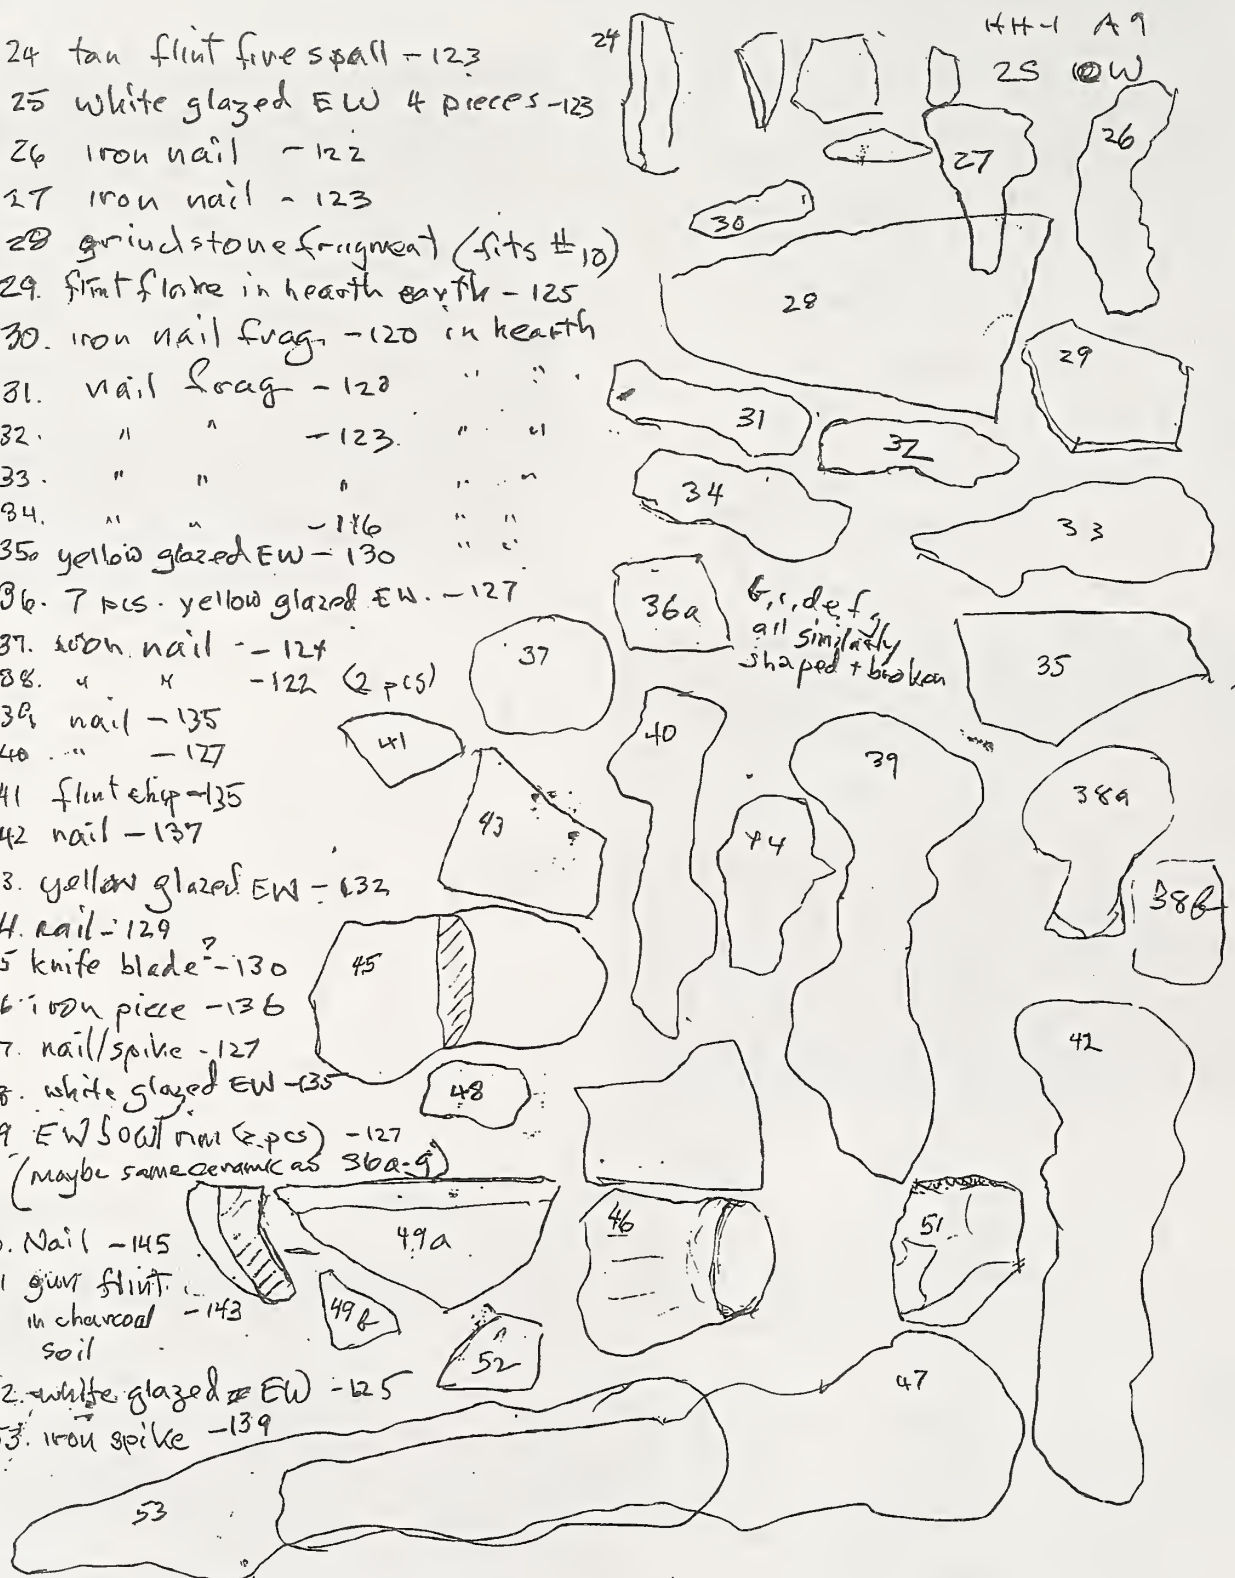 HH-1 A9
2S 0W
24 tan flint fire spall - 123
25 white glazed EW 4 pieces - 123
26 iron nail - 122
27 iron nail - 123
28 grindstone fragment (fits #10)
29. flint flake in hearth earth - 125
30. iron nail frag. - 120 in hearth
31. nail frag - 120 " "
32. " " - 123. " "
33. " " " " "
34. " " - 116 " "
35. yellow glazed EW - 130 " "
36. 7 pcs. yellow glazed EW. - 127
37. iron nail - 124
38. " " - 122 (2 pcs)
39 nail - 135
40 " - 127
41 flint chip - 135
42 nail - 137
3. yellow glazed EW - 132
4. nail - 129
5 knife blade? - 130
6 iron piece - 136
7. nail/spike - 127
8. white glazed EW - 135
9 EW bowl rim (2 pcs) - 127
(maybe same ceramic as 36a-g)
. Nail - 145
1 gun flint
in charcoal - 143
soil
2. white glazed EW - 125
53. iron spike - 139
24
26
27
30
28
29
31
32
34
33
36a
b, c, d, e, f, g
all similarly
shaped + broken
37
35
41
40
39
38a
43
44
38b
45
42
48
49a
46
51
49b
52
47
53